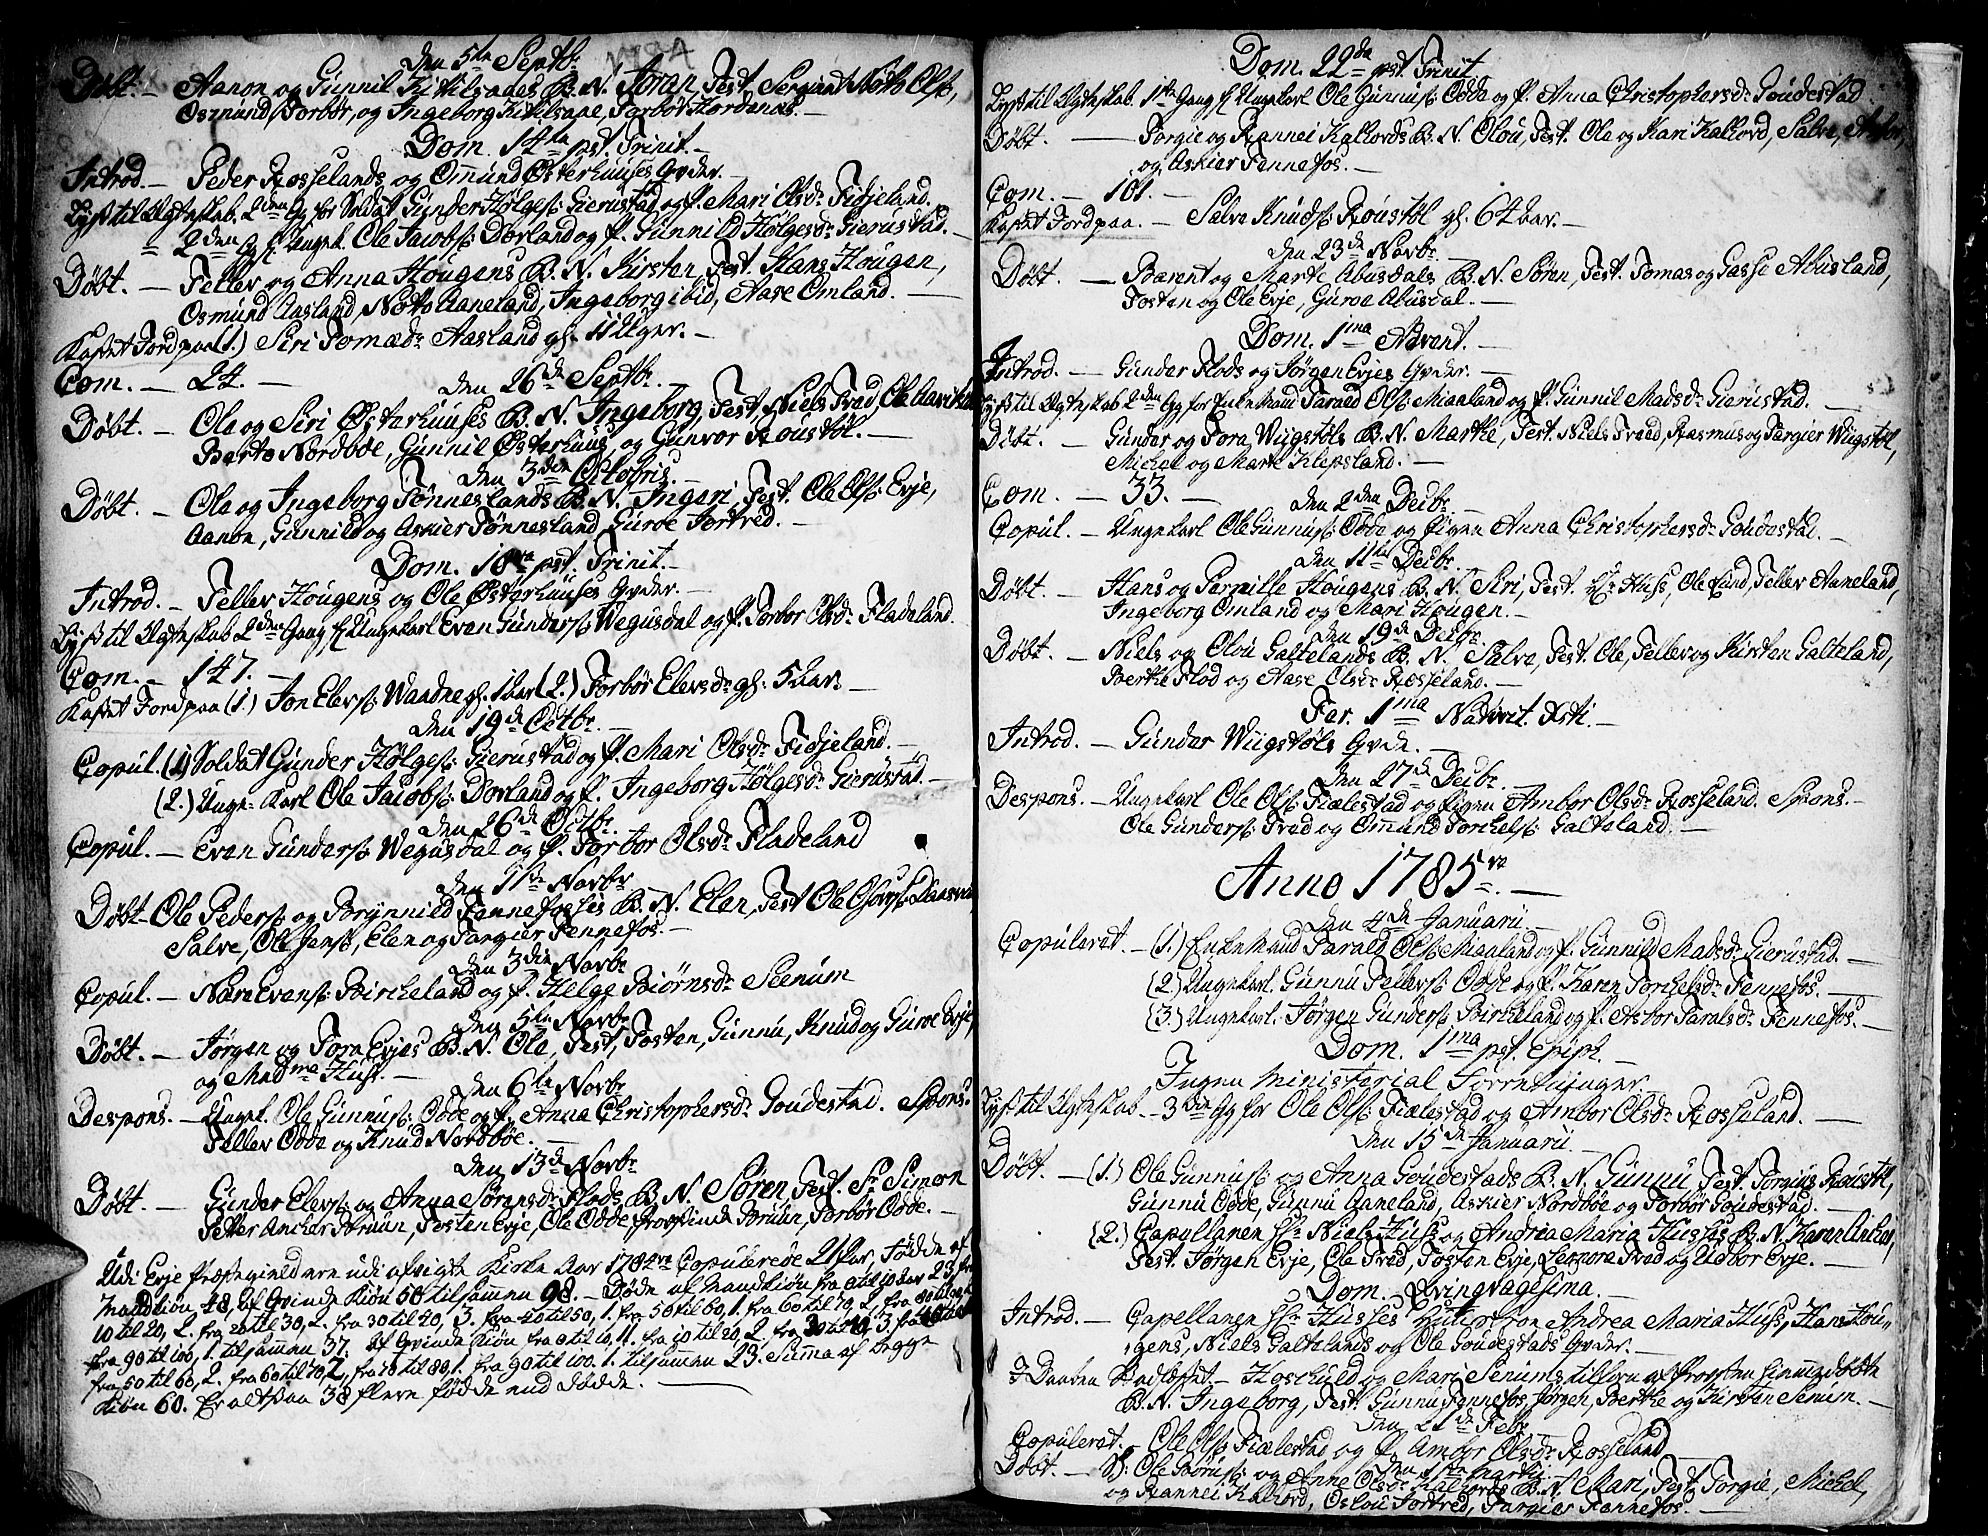 Den 5te Septbr
Døbt. — Aanon og Gunnil Kitilsaaes B. N. Joran, Test. Sergiant Noto Ols:,
Osmund, Torbør, og Ingeborg Kitilsaae, Torbor Hordenes. —
Dom. 14de pst. Trinit. —
Introd. — Peder Rosselands og Omund Østerhuuses Qvder. —
Lyst til Ægteskab. 2den Gg for Soldat Gunder Hølges: Gierustad og P. Mari Olsdr Fidjeland.
" 2den Gg f. Ungek. Ole Jacobs: Dovland og P. Gunnild Hølgesdr Gierustad. —
Døbt. — Tellev og Anna Hougens B. N. Kirsten, Test. Hans Hougen,
Osmund Aasland, Noto Aaneland, Ingeborg ibid, Aase Omland. —
Kastet Jord paa (1.) Siri Tomædr Aasland gl. 11 Uger. —
Com. — 24. —
den 26de Septbr. —
Døbt. — Ole og Siri Østerhuuses B. N. Ingeborg, Test. Niels Tved, Ole
Berte Nordbøe, Gunnil Østerhuus, og Gunvor Roustøl. —
Den 3den Octobris. —
Døbt. — Ole og Ingeborg Tønneslands B. N. Ingeri, Test. Ole Ols: Evje,
Aanon, Gunnild og Askier Tønnesland, Guroe Tortved. —
Dom. 18de pst. Trinit. —
Introd. — Tellev Hougens og Ole Østerhuuses Qvder. —
Lyst til Ægteskab 2den Gang f. Ungekarl Even Gunders: Wegusdal og P. Torbor Olsdr Fladeland.
Com. — 147. —
Kastet Jord paa (1.) Jon Elevs: Waadne gl. 1 aar (2.) Torbør Elevsdr gl. 5 aar. —
Den 19de Octbr. —
Copul. (1.) Soldat Gunder Hølges: Gierustad og P. Mari Olsdr Fidjeland. —
(2.) Unge Karl Ole Jacobs: Dovland og P. Ingeborg Hølgesdr Gierustad. —
Den 26de Octbr. —
Copul. — Even Gunders: Wegusdal og P. Torbor Olsdr Fladeland
Den 1ste Novbr
Døbt — Ole Peders: og Brynnild Fennefosses B. N. Elen, Test. Ole
Salve, Ole Jens:, Elen og Targier Fennefos. —
Den 3die Novbr
Copul. — Nare Evens: Bircheland og P. Helge Biørnsdr Senum
Den 5te Novbr
Døbt. — Jørgen og Tora Evjes B. N. Ole, Test, Tosten, Gunnu, Knud og Guroe Evje,
og Madme Hus. —
Den 6te Novbr
Despons. — Ungek. Ole Gunnus: Odde og P. Anna Christophersdr Goudestad. Spons.
Tellev Odde og Knud Nordbøe. —
Den 13de Novbr
Døbt. — Gunder Elevs: og Anna Sørensdr Flods B. N. Søren, Test. Sr Simon
Petter Ancher Bruun, Tosten Evje, Ole Odde Provstinde Bruun, Torbor Odde. —
Udi Evje Præstegield ere udi afvigte Kirke Aar 1784 Copulerede 21 Par, Fødde af
Mandkiøn 48, af Qvinde Kiøn 50 tilsammen 98. — Døde af Mandkiøn fra 0 til 10 aar 23, fra
10 til 20, 2. fra 20 til 30, 2. fra 30 til 40, 3. fra 40 til 50, 1. fra 50 til 60, 1. fra 60 til 70, 2,
fra 90 til 100, 1. tilsammen 37. Af Qvinde Kiøn fra 0 til 10, 11. fra 10 til 20, 2. fra 30 til 40, 3
fra 50 til 60, 2. fra 60 til 70, 2, fra 70 til 80, 1. fra 90 til 100. 1. tilsammen 23. Suma af begge
Kiøn 60. Er altsaa 38 flere fødde end dødde. —
Dom. 22de pst. Trinit
Lyst til Ægteskab. 1ste Gang f. Ungekarl Ole Gunnus: Odde og P. Anna Christophersdr Goudestad
Døbt. — Torgie og Rannei Kalhovds B. N. Olou, Test. Ole og Kari Kalhovd, Salve,
og Askier Fennefos. —
Com. — 101. —
Kastet Jord paa. — Salve Knuds: Roustøl gl. 64 aar. —
Den 23de Novbr. —
Døbt. — Barent og Marte Abusdals B. N. Søren, Test. Tomas og Gasse Abusland,
Tosten og Ole Evje, Guroe Abusdal. —
Dom. 1ma Advent. —
Introd. — Gunder Flods og Jørgen Evjes Qvder. —
Lyst til Ægteskab 2den Gg for Enkemand Tarald Ols: Miaaland og P. Gunnil Madsdr Gierustad. —
Døbt. — Gunder og Tora Wiigstøls B. N. Marthe, Test. Niels Tved, Rasmus og Targier Wiigstøl,
Michel og Marte Klepsland. —
Com. — 33. —
Den 2den Decbr. —
Copul. — Ungekarl Ole Gunnus: Odde og Pigen Anna Christophersdr Goudestad. —
Den 11te Decbr. —
Døbt. — Hans og Pernille Hougens B. N. Siri, Test. Hr Huss, Ole Lund, Tellev Aaneland,
Ingeborg Omland og Mari Hougen. —
Den 19de Decbr.
Døbt. — Niels og Olou Galtelands B. N. Salve, Test. Ole, Tellev og Kirsten Galteland,
Berthe Flod og Aase Olsdr Rosseland. —
Fer. 1ma Nativit. Xsti. —
Introd. — Gunder Wiigstøls Qvde. —
Den 27de Decbr. —
Despons. — Ungekarl Ole Ols: Fiælestad og Pigen Ambor Olsdr Rosseland. Spons. —
Ole Gunders: Tved og Omund Torchels: Galteland. —
Anno 1785. —
Den 4de Januarii. —
Copuleret. — (1.) Enkemand Tarald Ols: Miaaland og P. Gunnild Madsdr Gierustad. —
(2.) Ungekarl. Gunnu Tellevs: Odde og P. Karen Torchelsdr Fennefos. —
(3.) Ungekarl. Jørgen Gunders: Bircheland og P. Asbor Taralsdr Fennefos. —
Dom. 1ma pst. Epiph. —
Ingen Ministerial Forretninger. —
Lyst til Ægteskab. — 3die Gg for Ole Ols: Fiælestad og Ambor Olsdr Rosseland. —
Den 15de Januarii —
Døbt. — (1.) Ole Gunnus: og Anna Goudestads B. N. Gunnu Test. Torgius Roustøl,
Gunnu Odde, Gunnu Aaneland, Askier Nordbøe og Torbør Goudestad. —
(2.) Capellanen Hr Niels Huss og Andrea Maria Husses B. N. Karen
Test. Jørgen Evje, Ole Tved, Tosten Evje, Leonora Tved og Udbor Evje. —
Dom. Qvinqvagesima. —
Introd. — Capellanen Hr Husses Hustru Andrea Maria Huss, Hans Hou-
gens, Niels Galtelands og Ole Goudestads Qvder. —
I Daaben Stadfæstet. — Hoskuld og Mari Senums tillforn af Provsten hiemmedøbte
B. N. Ingeborg, Test. Gunnu Fennefos, Jørgen, Berthe og Kirsten Senum. —
Den 21de Febr
Copuleret. — Ole Ols: Fiælestad og P. Ambor Olsdr Rosseland
Den 1ste Martii. —
Døbt. — S: Ole Børus: og Anne Olsdr Kalhovds B. N. Mari, Test. Torgie, Michel,
og Rannei Kalhovd, Oslou Tortved, Targier Fennefos. —